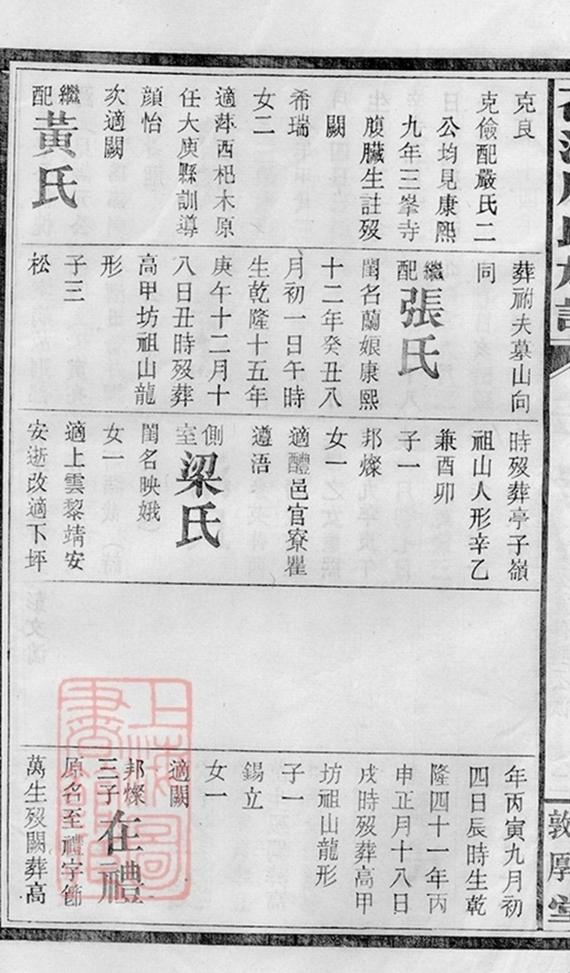 克良
克儉配嚴氏二
公均見康熙
九年三峯寺
腹臟生註歿
闕
希瑞
女二
適萍西杷木原
任大庾縣訓導
顔怡
次適闕
繼配黃氏
葬祔夫墓山向
同
繼配張氏
閨名蘭娘康熙
十二年癸丑八
月初一日午時
生乾隆十五年
庚午十二月十
八日丑時歿葬
高甲坊祖山龍
形
子三
松
時歿葬亭子嶺
祖山人形辛乙
兼酉卯
子一
邦燦
女一
適醴邑官寮瞿
遵浯
側室梁氏
閨名映娥
女一
適上雲黎靖安
安逝改適下坪
年丙寅九月初
四日辰時生乾
隆四十一年丙
申正月十八日
戌時歿葬高甲
坊祖山龍形
子一
錫立
女一
適闕
邦燦三子在禮
原名至禮字節
萬生歿闕葬高
敦厚堂
上海圖書館藏